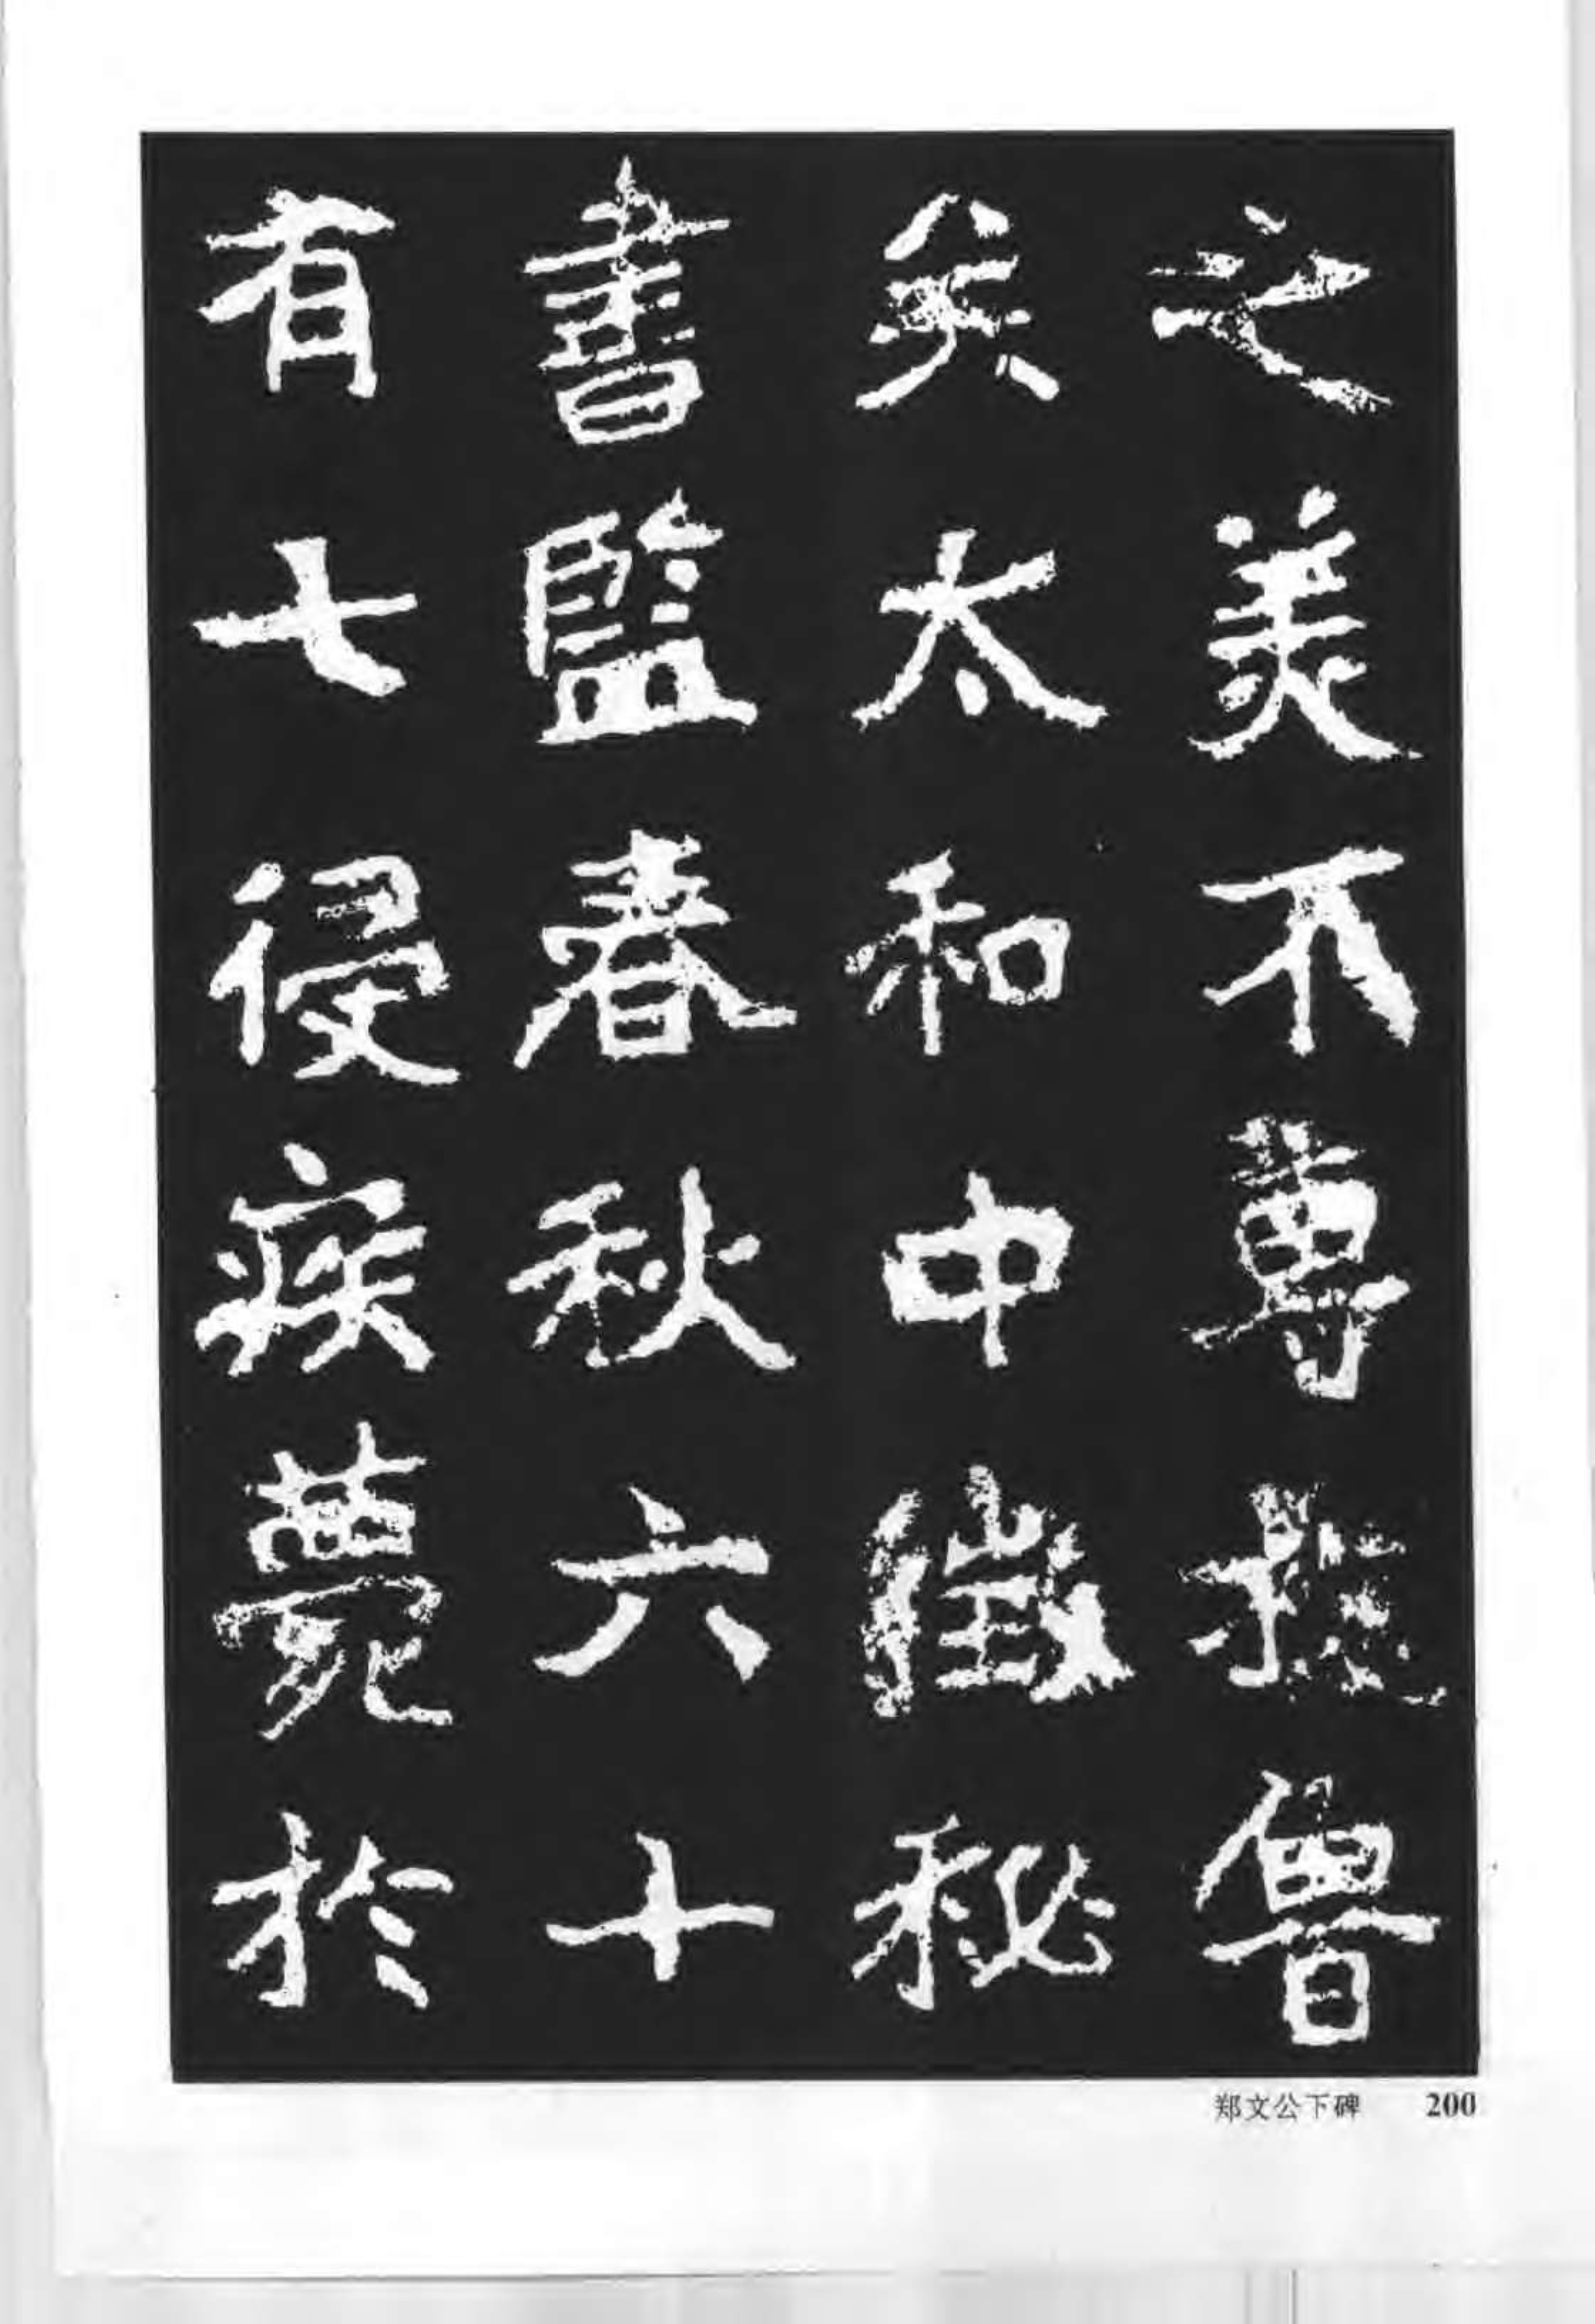 之美不尊扵魯
矣太和中徵秘
書監春秋六十
有七侵疾薨於
郑文公下碑 200